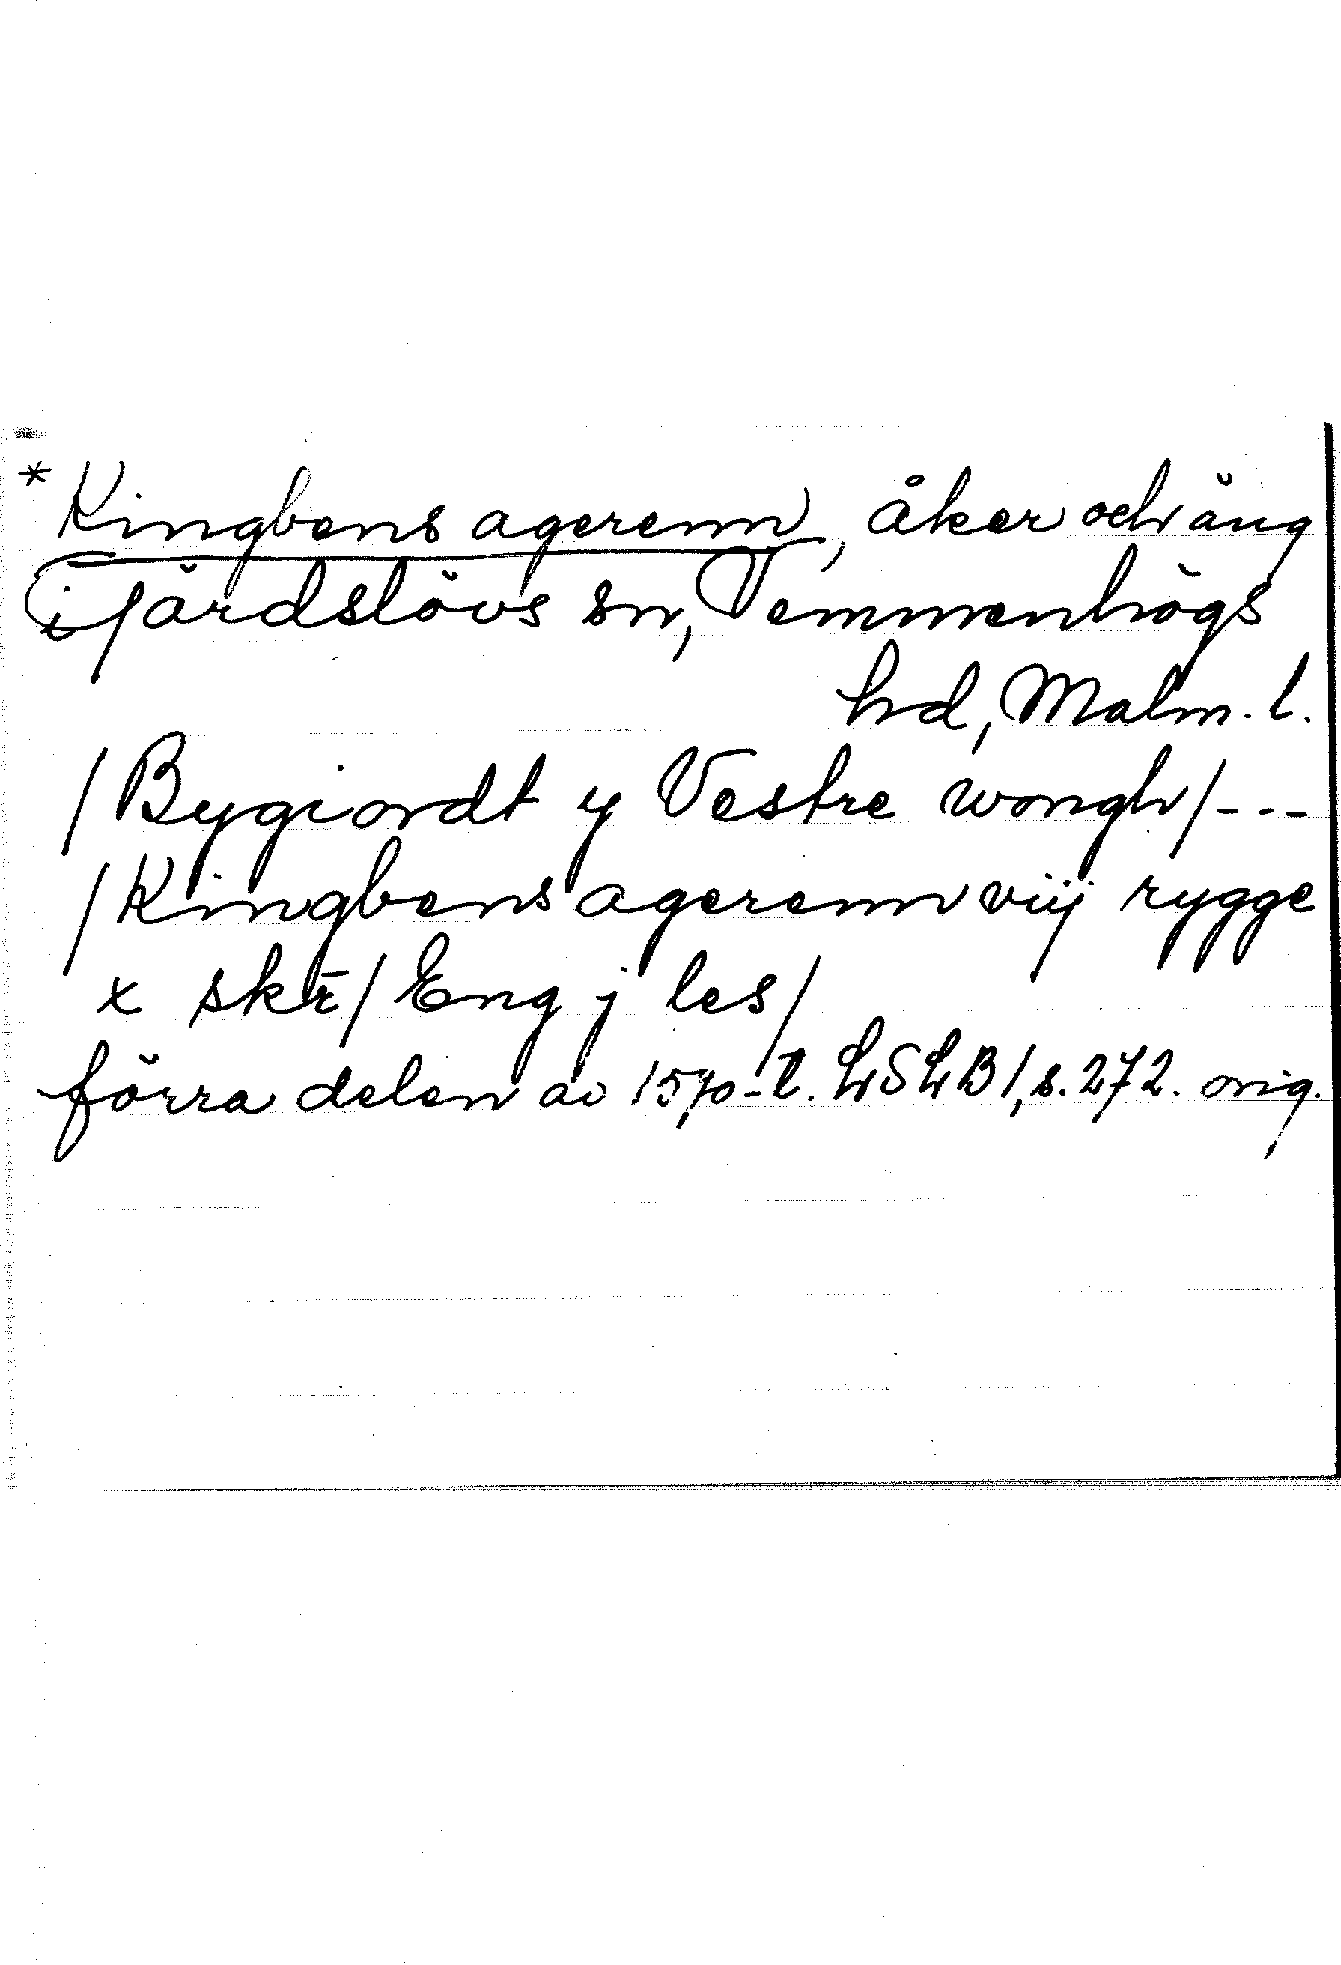 * Kingbens agerenn, åker och äng
i Gärdslövs sn, Vemmenhögs
hd, Malm. l.
/Bygiordt y Vestre wongh/---
/Kingbens agerenn viij rygge
x skr̄/ Eng j les/
förra delen av 1570-t. LSLB 1, s. 272. orig.